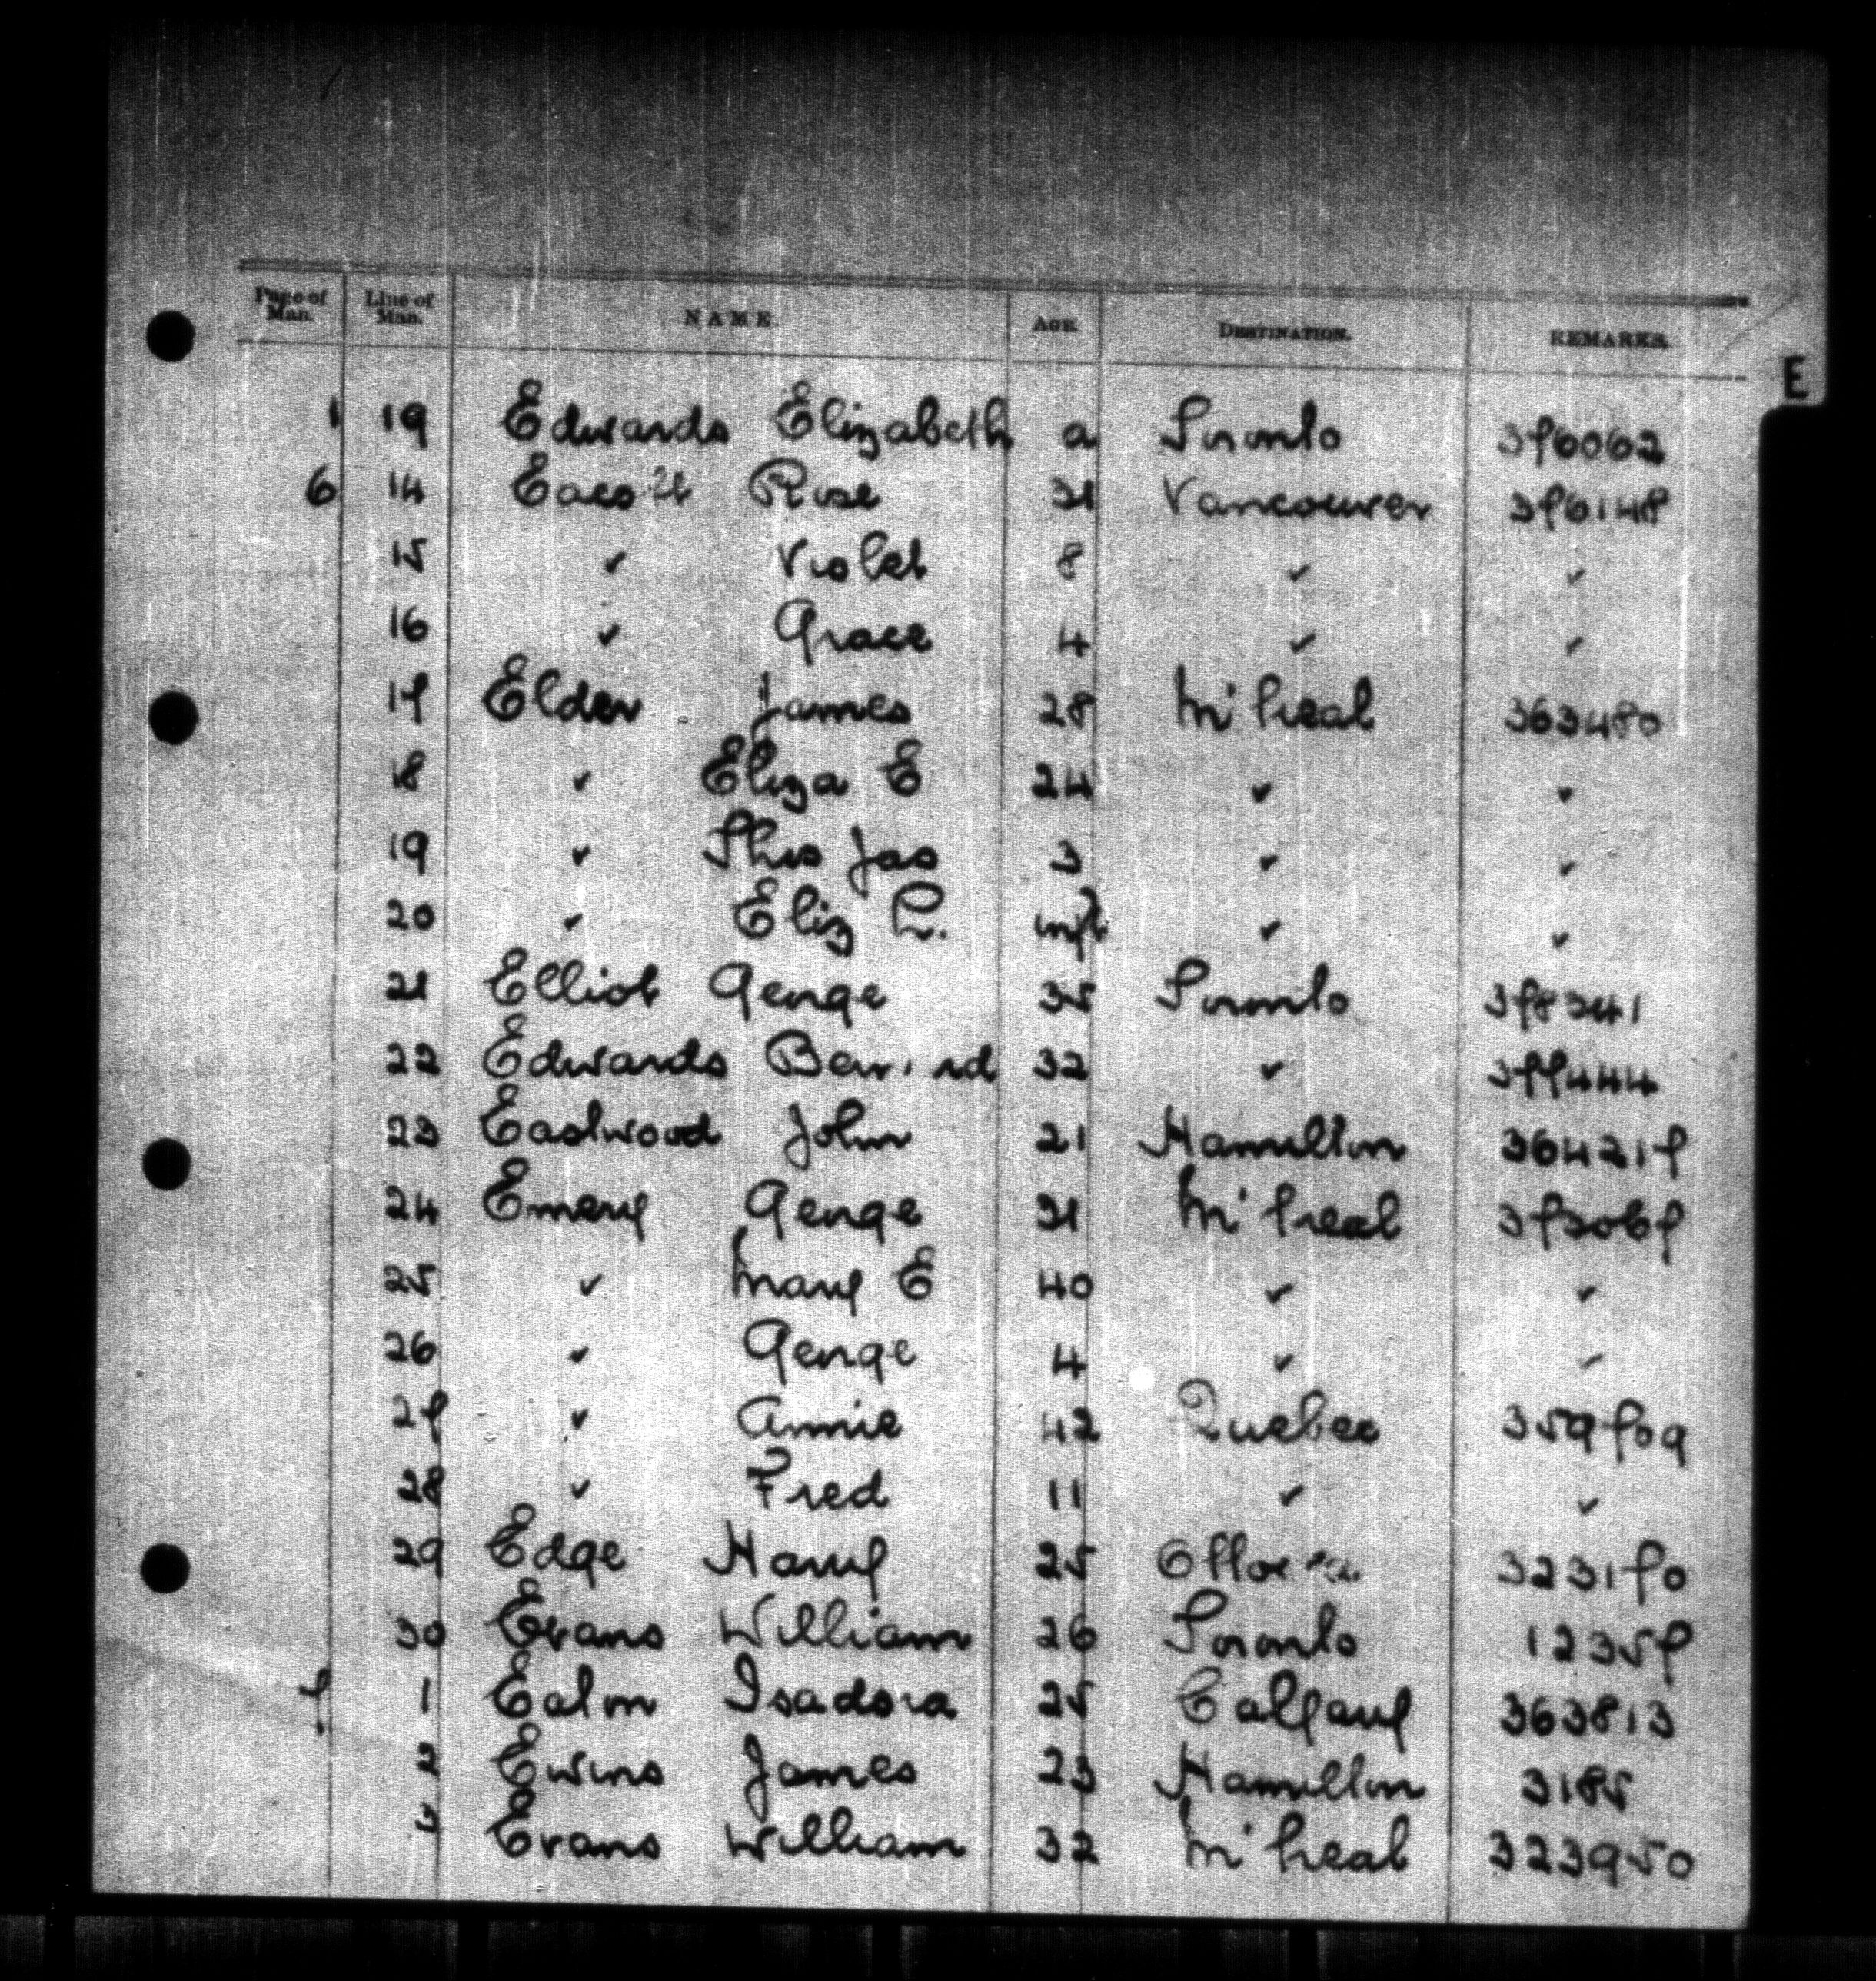 Page of Man. Line of Man. NAME. AGE. DESTINATION. REMARKS.
E
1 19 Edwards Elizabeth a Toronto 376062
6 14 Eacott Rose 31 Vancouver 376148
15 ✓ Violet 8 ✓ ✓
16 ✓ Grace 4 ✓ ✓
17 Elder James 28 M'treal 363480
18 ✓ Eliza E 24 ✓ ✓
19 ✓ Thos Jas 3 ✓ ✓
20 ✓ Eliz R. inft ✓ ✓
21 Elliot George 35 Toronto 378341
22 Edwards Bernard 32 ✓ 377444
23 Eastwood John 21 Hamilton 364217
24 Emery George 31 M'treal 373067
25 ✓ Mary E 40 ✓ ✓
26 ✓ George 4 ✓ ✓
27 ✓ Annie 42 Quebec 359709
28 ✓ Fred 11 ✓ ✓
29 Edge Harry 25 Ottawa 323170
30 Evans William 26 Toronto 12357
7 1 Ealm Isadora 25 Calgary 363813
2 Ewins James 23 Hamilton 3185
3 Evans William 32 M'treal 323950